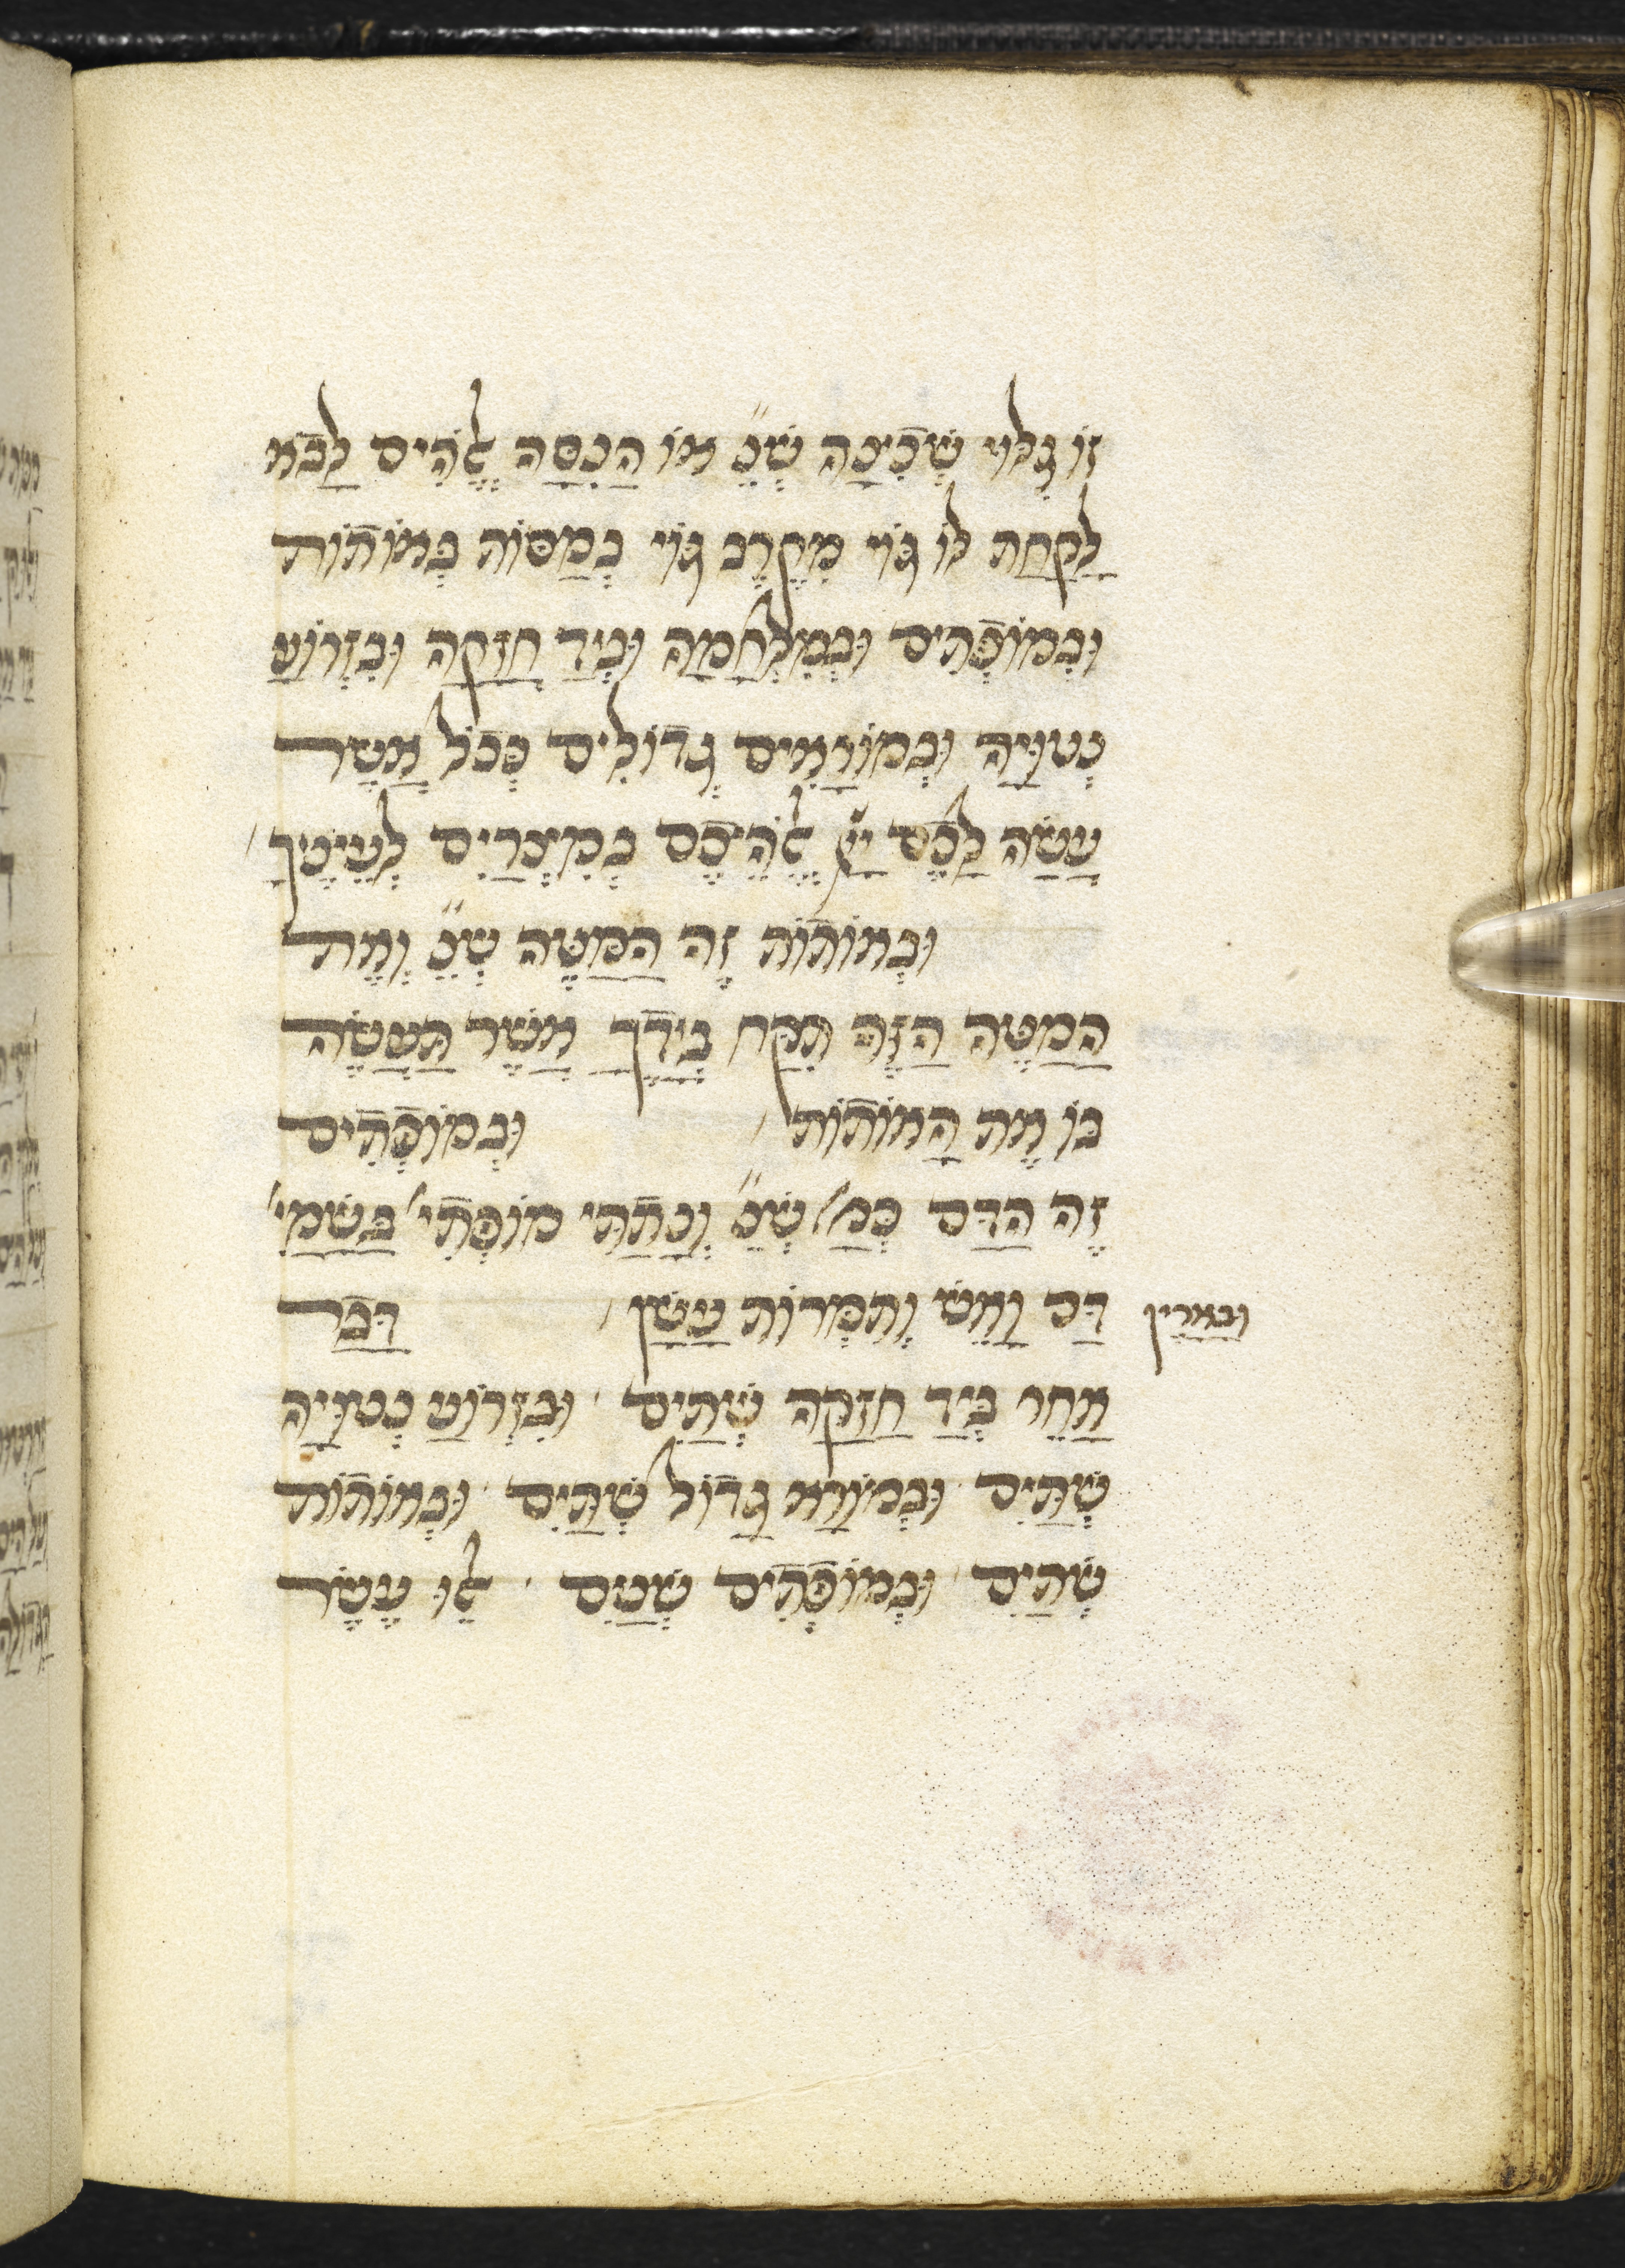 זוֹ גִלוּי שְׁכִינָה שֶׁנֶ״ אוֹ הֲנִסָּה אֱלֹהִים לָבֹא
לָקַחַת לוֹ גּוֹי מִקֶּרֶב גּוֹי בְמַסּוֹת בְּאוֹתוֹת
וּבְמוֹפְתִים וּבְמִלְחָמָה וּבְיָד חֲזָקָה וּבִזְרוֹעַ
נְטוּיָה וּבְמוֹרָאִים גְּדוֹלִים כְּכֹל אֲשֶׁר
עָשָׂה לָכֶם יְיָ אֱלֹהֵיכֶם בְּמִצְרַיִם לְעֵינֶיךָ
וּבְאוֹתוֹת זֶה הַמַּטֶּה שֶׁנֶ״ וְאֶת
הַמַּטֶּה הַזֶּה תִּקַּח בְּיָדֶךָ אֲשֶׁר תַּעֲשֶׂה
בּוֹ אֶת הָאוֹתוֹת וּבְמוֹפְתִים
זֶה הַדָּם כְּמַ׳ שֶׁנֶ״ וְנָתַתִּי מוֹפְתִי׳ בַּשָּׁמַי׳
דָּם וָאֵשׁ וְתִמְרוֹת עָשָׁן דָּבָר
ובארץ
אַחֵר בְּיָד חֲזָקָה שְׁתַּיִם וּבִזְרוֹעַ נְטוּיָה
שְׁתַּיִם וּבְמוֹרָא גָּדוֹל שְׁתַּיִם וּבְאוֹתוֹת
שְׁתַּיִם וּבְמוֹפְתִים שְׁתַּיִם אֵלּוּ עֶשֶׂר